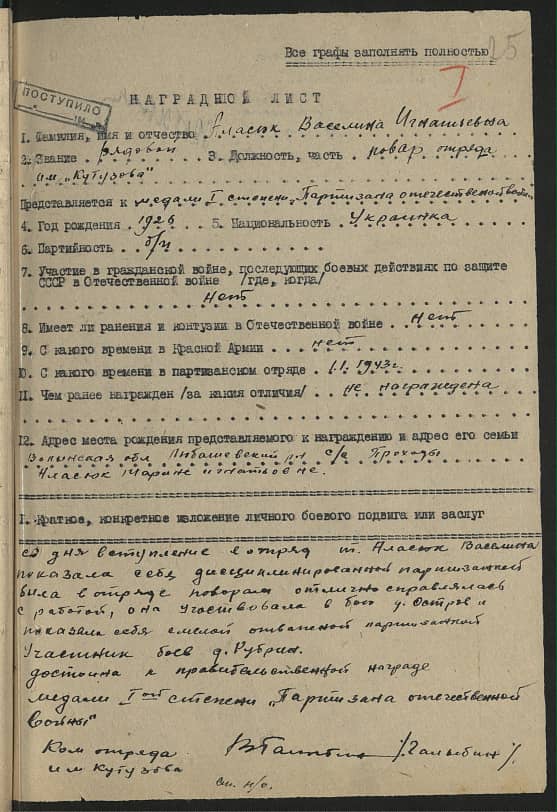 25
Все графы заполнять полностью
I
ПОСТУПИЛО
НАГРАДНОЙ ЛИСТ
1. Фамилия, имя и отчество Власюк Василина Игнатьевна
2. Звание рядовой 3. Должность, часть повар отряда
им „Кутузова"
Представляется к медали I степени „Партизана отечественной войны
4. Год рождения 1926 5. Национальность Украинка
6. Партийность б/п
7. Участие в гражданской войне, последующих боевых действиях по защите
СССР в Отечественной войне /где, когда/
Нет
8. Имеет ли ранения и контузии в Отечественной войне Нет
9. С какого времени в Красной Армии нет
10. С какого времени в партизанском отряде 1.1.1943г.
11. Чем ранее награжден /за какия отличия/ не награждена
12. Адрес места рождения представляемого к награждению и адрес его семьи
Волынская обл Любашевский р-н с/с Проходы
Власюк
1. Краткое, конкретное изложение личного боевого подвига или заслуг
со дня вступление в отряд т. Власюк Василина
показала себя дисциплинированной партизанкой
была в отряде поваром отлично справлялась
с работой, она участвовала в бою д. Остров и
показала себя смелой отважной партизанкой
Участник боев д. Рубрин.
достойна к правительственной награде
медали I ой степени „Партизана отечественной
войны"
Ком отряда
им Кутузова
/Галыбин/.
см. н/о.